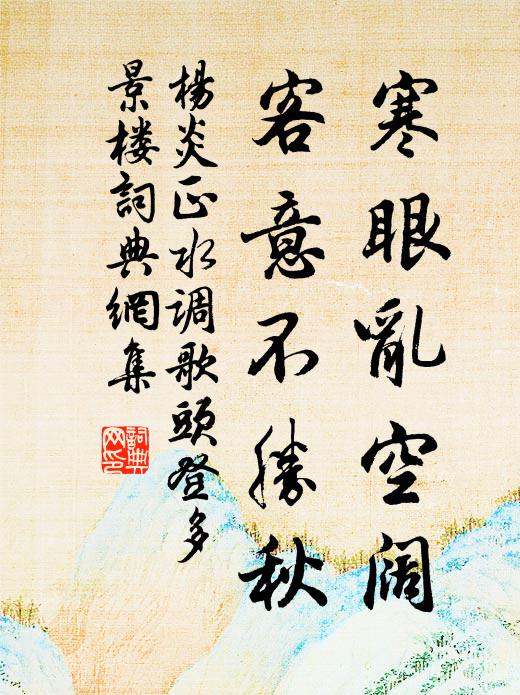 寒眼亂空闊
客意不勝秋
楊炎正水调歌頭登多
景楼詞典網集
詞典网印